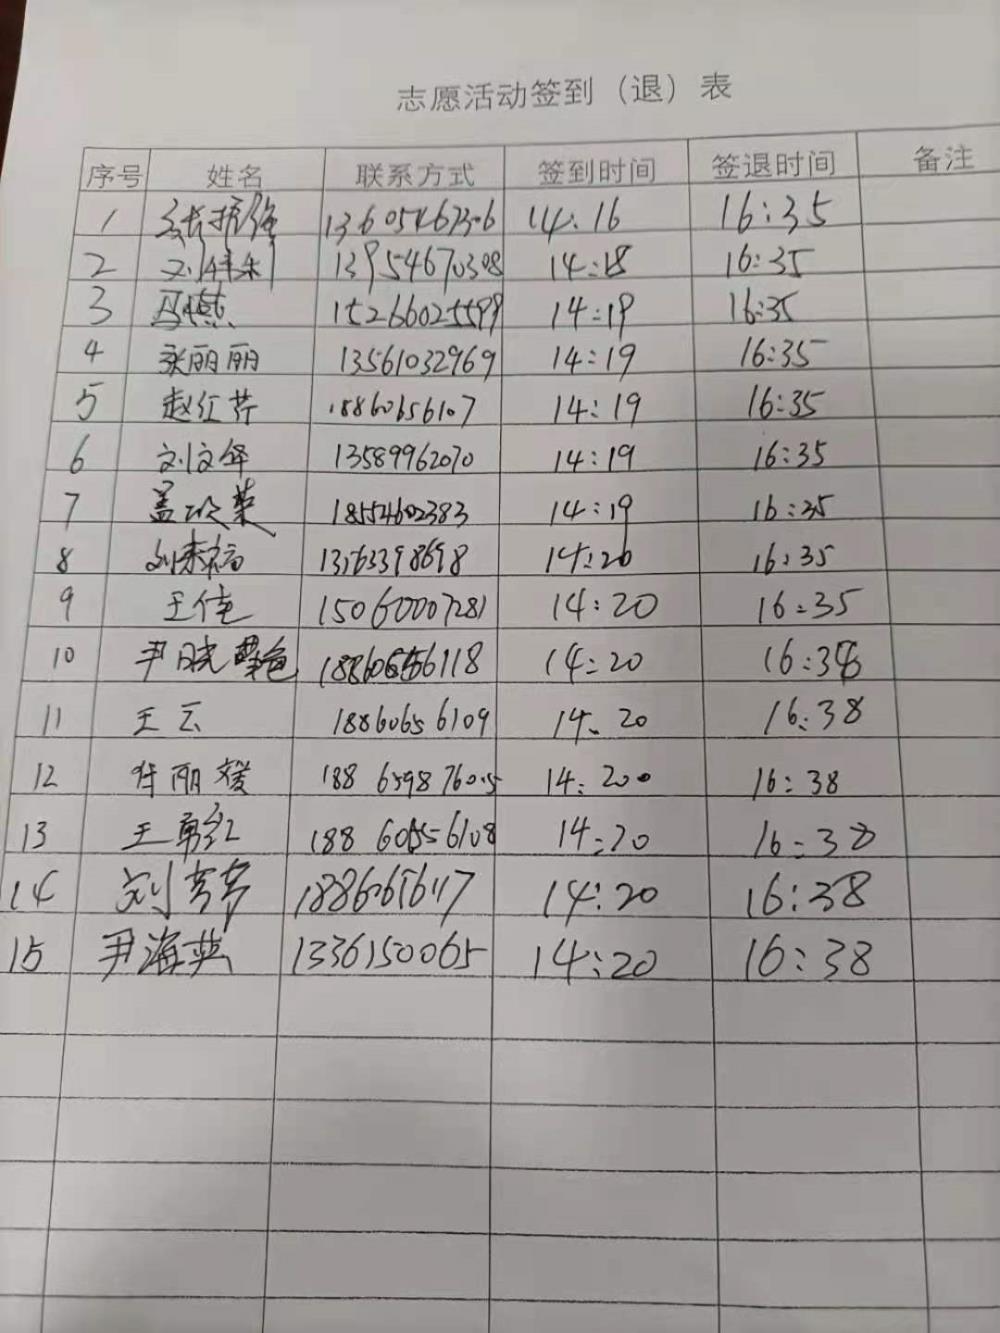 志愿活动签到（退）表
序号 姓名 联系方式 签到时间 签退时间 备注
1 13605467306 14:16 16:35
2 13954670308 14:18 16:35
3 马燕 15266025599 14:19 16:35
4 张丽丽 13561032969 14:19 16:35
5 赵红芹 18860656107 14:19 16:35
6 刘文华 13589962070 14:19 16:35
7 18554602383 14:19 16:35
8 13563398698 14:20 16:35
9 王佳 15060007281 14:20 16:35
10 尹晓艳 18860656118 14:20 16:38
11 王云 18860656109 14:20 16:38
12 14:20 16:38
13 王勇红 18860656108 14:20 16:38
14 刘芳芳 14:20 16:38
15 尹海燕 13361500065 14:20 16:38